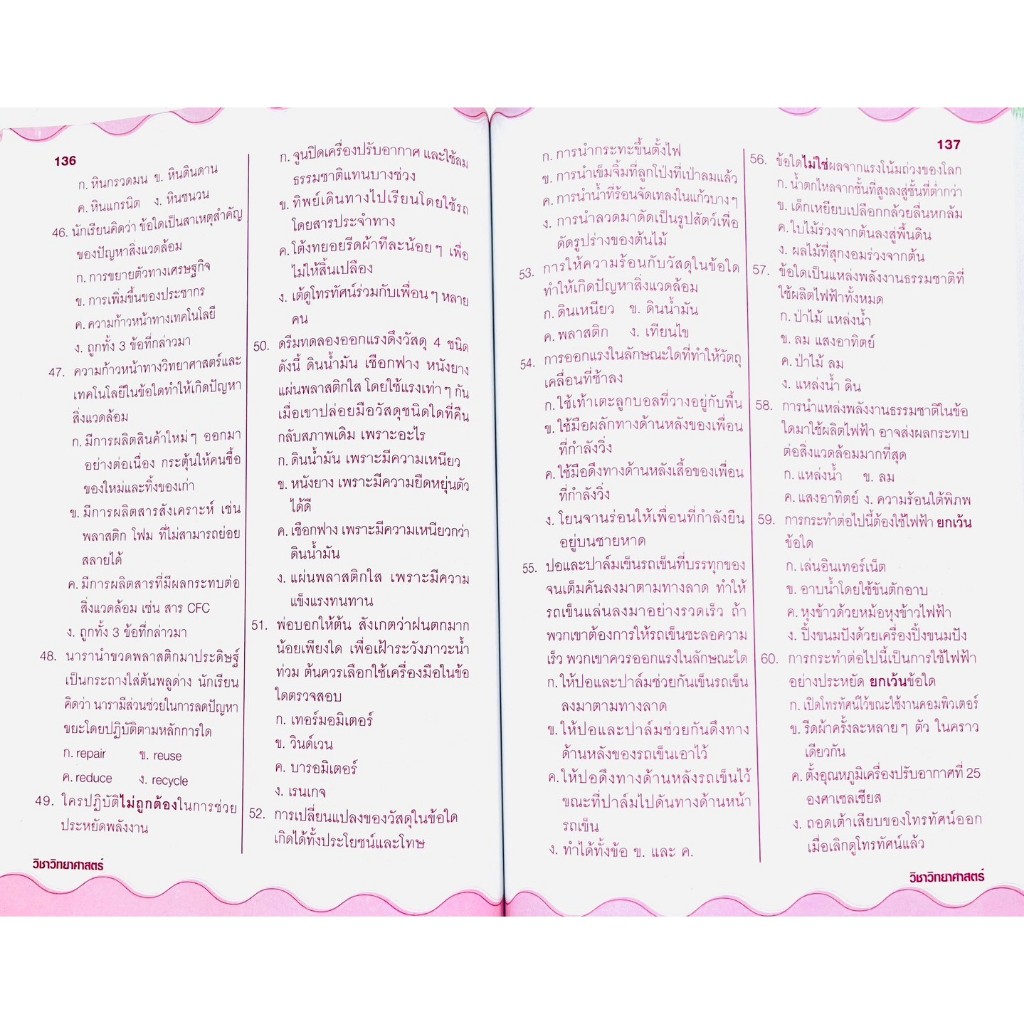 136
ก. หินกรวดมน ข. หินดินดาน
ค. หินแกรนิต ง. หินชนวน
46. นักเรียนคิดว่า ข้อใดเป็นสาเหตุสำคัญ
ของปัญหาสิ่งแวดล้อม
ก. การขยายตัวทางเศรษฐกิจ
ข. การเพิ่มขึ้นของประชากร
ค. ความก้าวหน้าทางเทคโนโลยี
ง. ถูกทั้ง 3 ข้อที่กล่าวมา
47. ความก้าวหน้าทางวิทยาศาสตร์และ
เทคโนโลยีในข้อใดทำให้เกิดปัญหา
สิ่งแวดล้อม
ก. มีการผลิตสินค้าใหม่ๆ ออกมา
อย่างต่อเนื่อง กระตุ้นให้คนซื้อ
ของใหม่และทิ้งของเก่า
ข. มีการผลิตสารสังเคราะห์ เช่น
พลาสติก โฟม ที่ไม่สามารถย่อย
สลายได้
ค. มีการผลิตสารที่มีผลกระทบต่อ
สิ่งแวดล้อม เช่น สาร CFC
ง. ถูกทั้ง 3 ข้อที่กล่าวมา
48. นารานำขวดพลาสติกมาประดิษฐ์
เป็นกระถางใส่ต้นพลูด่าง นักเรียน
คิดว่า นารามีส่วนช่วยในการลดปัญหา
ขยะโดยปฏิบัติตามหลักการใด
ก. repair ข. reuse
ค. reduce ง. recycle
49. ใครปฏิบัติไม่ถูกต้องในการช่วย
ประหยัดพลังงาน
วิชาวิทยาศาสตร์
ก. จูนปิดเครื่องปรับอากาศ และใช้ลม
ธรรมชาติแทนบางช่วง
ข. ทิพย์เดินทางไปเรียนโดยใช้รถ
โดยสารประจำทาง
ค. โต้งทยอยรีดผ้าทีละน้อยๆ เพื่อ
ไม่ให้สิ้นเปลือง
ง. เต้ดูโทรทัศน์ร่วมกับเพื่อนๆ หลาย
คน
50. ดรีมทดลองออกแรงดึงวัสดุ 4 ชนิด
ดังนี้ ดินน้ำมัน เชือกฟาง หนังยาง
แผ่นพลาสติกใส โดยใช้แรงเท่าๆ กัน
เมื่อเขาปล่อยมือวัสดุชนิดใดที่คืน
กลับสภาพเดิม เพราะอะไร
ก. ดินน้ำมัน เพราะมีความเหนียว
ข. หนังยาง เพราะมีความยืดหยุ่นตัว
ได้ดี
ค. เชือกฟาง เพราะมีความเหนียวกว่า
ดินน้ำมัน
ง. แผ่นพลาสติกใส เพราะมีความ
แข็งแรงทนทาน
51. พ่อบอกให้ต้น สังเกตว่าฝนตกมาก
น้อยเพียงใด เพื่อเฝ้าระวังภาวะน้ำ
ท่วม ต้นควรเลือกใช้เครื่องมือในข้อ
ใดตรวจสอบ
ก. เทอร์มอมิเตอร์
ข. วินด์เวน
ค. บารอมิเตอร์
ง. เรนเกจ
52. การเปลี่ยนแปลงของวัสดุในข้อใด
เกิดได้ทั้งประโยชน์และโทษ
137
ก. การนำกระทะขึ้นตั้งไฟ
ข. การนำเข็มจิ้มที่ลูกโป่งที่เป่าลมแล้ว
ค. การนำน้ำที่ร้อนจัดเทลงในแก้วบางๆ
ง. การนำลวดมาดัดเป็นรูปสัตว์เพื่อ
ดัดรูปร่างของต้นไม้
53. การให้ความร้อนกับวัสดุในข้อใด
ทำให้เกิดปัญหาสิ่งแวดล้อม
ก. ดินเหนียว ข. ดินน้ำมัน
ค. พลาสติก ง. เทียนไข
54. การออกแรงในลักษณะใดที่ทำให้วัตถุ
เคลื่อนที่ช้าลง
ก. ใช้เท้าเตะลูกบอลที่วางอยู่กับพื้น
ข. ใช้มือผลักทางด้านหลังของเพื่อน
ที่กำลังวิ่ง
ค. ใช้มือดึงทางด้านหลังเสื้อของเพื่อน
ที่กำลังวิ่ง
ง. โยนจานร่อนให้เพื่อนที่กำลังยืน
อยู่บนชายหาด
55. ปอและปาล์มเข็นรถเข็นที่บรรทุกของ
จนเต็มคันลงมาตามทางลาด ทำให้
รถเข็นแล่นลงมาอย่างรวดเร็ว ถ้า
พวกเขาต้องการให้รถเข็นชะลอความ
เร็ว พวกเขาควรออกแรงในลักษณะใด
ก. ให้ปอและปาล์มช่วยกันเข็นรถเข็น
ลงมาตามทางลาด
ข. ให้ปอและปาล์มช่วยกันดึงทาง
ด้านหลังของรถเข็นเอาไว้
ค. ให้ปอดึงทางด้านหลังรถเข็นไว้
ขณะที่ปาล์มไปดันทางด้านหน้า
รถเข็น
ง. ทำได้ทั้งข้อ ข. และ ค.
56. ข้อใดไม่ใช่ผลจากแรงโน้มถ่วงของโลก
ก. น้ำตกไหลจากชั้นที่สูงลงสู่ชั้นที่ต่ำกว่า
ข. เด็กเหยียบเปลือกกล้วยลื่นหกล้ม
ค. ใบไม้ร่วงจากต้นลงสู่พื้นดิน
ง. ผลไม้ที่สุกงอมร่วงจากต้น
57. ข้อใดเป็นแหล่งพลังงานธรรมชาติที่
ใช้ผลิตไฟฟ้าทั้งหมด
ก. ป่าไม้ แหล่งน้ำ
ข. ลม แสงอาทิตย์
ค. ป่าไม้ ลม
ง. แหล่งน้ำ ดิน
58. การนำแหล่งพลังงานธรรมชาติในข้อ
ใดมาใช้ผลิตไฟฟ้า อาจส่งผลกระทบ
ต่อสิ่งแวดล้อมมากที่สุด
ก. แหล่งน้ำ ข. ลม
ค. แสงอาทิตย์ ง. ความร้อนใต้พิภพ
59. การกระทำต่อไปนี้ต้องใช้ไฟฟ้า ยกเว้น
ข้อใด
ก. เล่นอินเทอร์เน็ต
ข. อาบน้ำโดยใช้ขันตักอาบ
ค. หุงข้าวด้วยหม้อหุงข้าวไฟฟ้า
ง. ปิ้งขนมปังด้วยเครื่องปิ้งขนมปัง
60. การกระทำต่อไปนี้เป็นการใช้ไฟฟ้า
อย่างประหยัด ยกเว้นข้อใด
ก. เปิดโทรทัศน์ไว้ขณะใช้งานคอมพิวเตอร์
ข. รีดผ้าครั้งละหลายๆ ตัว ในคราว
เดียวกัน
ค. ตั้งอุณหภูมิเครื่องปรับอากาศที่ 25
องศาเซลเซียส
ง. ถอดเต้าเสียบของโทรทัศน์ออก
เมื่อเลิกดูโทรทัศน์แล้ว
วิชาวิทยาศาสตร์